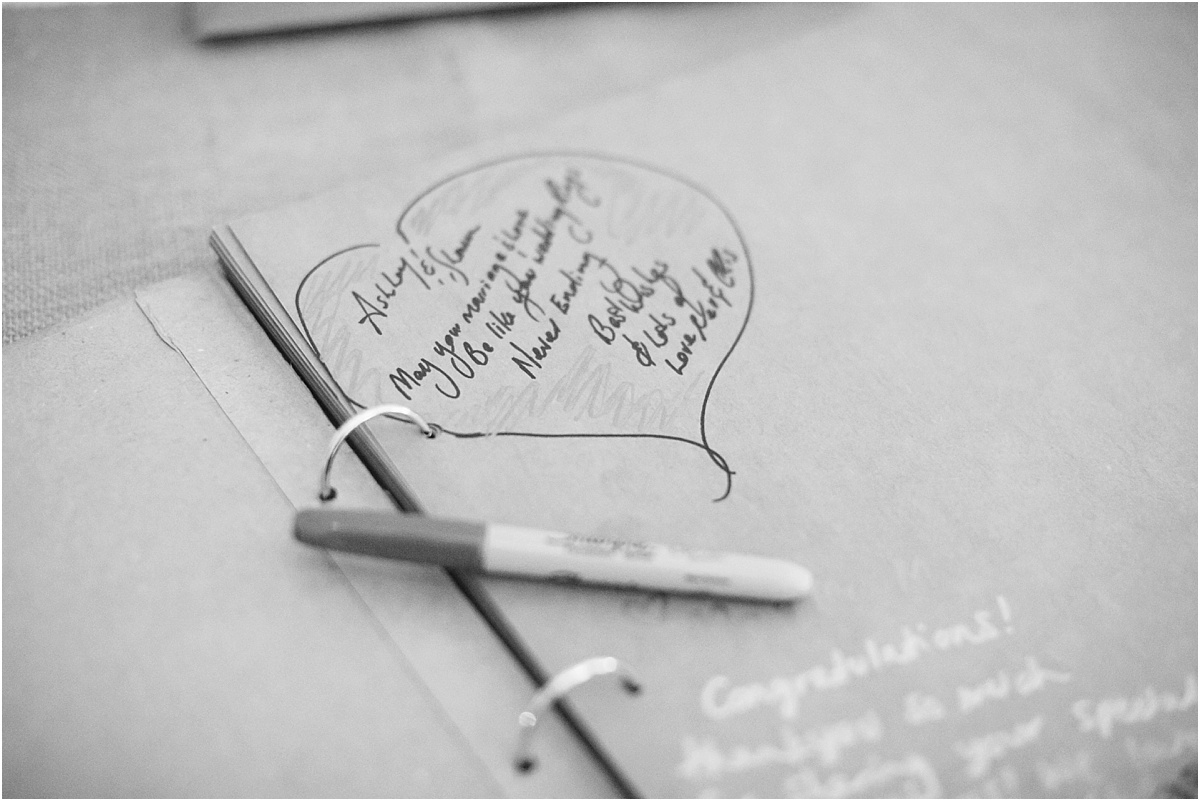 Ashley & Shawn
May your marriage & love
Be like your wedding Rings
Never Ending
Best Wishes
& Lots of
Love
Congratulations!
thankyou so much
sharing your special